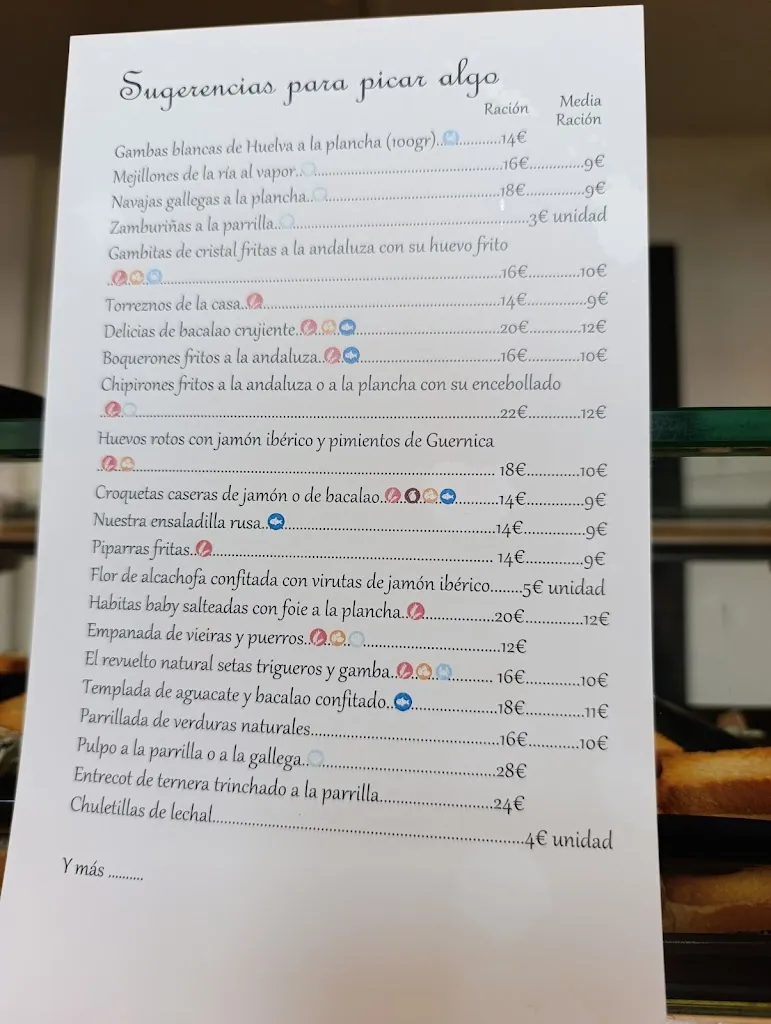 Sugerencias para picar algo
Ración Media
Ración
Gambas blancas de Huelva a la plancha (100gr)..............14€
Mejillones de la ría al vapor..............16€..............9€
Navajas gallegas a la plancha..............18€..............9€
Zamburiñas a la parrilla..............3€ unidad
Gambitas de cristal fritas a la andaluza con su huevo frito
..............16€..............10€
Torreznos de la casa..............14€..............9€
Delicias de bacalao crujiente..............20€..............12€
Boquerones fritos a la andaluza..............16€..............10€
Chipirones fritos a la andaluza o a la plancha con su encebollado
..............22€..............12€
Huevos rotos con jamón ibérico y pimientos de Guernica
.............. 18€..............10€
Croquetas caseras de jamón o de bacalao..............14€..............9€
Nuestra ensaladilla rusa..............14€..............9€
Piparras fritas.............. 14€..............9€
Flor de alcachofa confitada con virutas de jamón ibérico........5€ unidad
Habitas baby salteadas con foie a la plancha..............20€..............12€
Empanada de vieiras y puerros..............12€
El revuelto natural setas trigueros y gamba.............. 16€..............10€
Templada de aguacate y bacalao confitado..............18€..............11€
Parrillada de verduras naturales..............16€..............10€
Pulpo a la parrilla o a la gallega..............28€
Entrecot de ternera trinchado a la parrilla..............24€
Chuletillas de lechal..............4€ unidad
Y más ..........